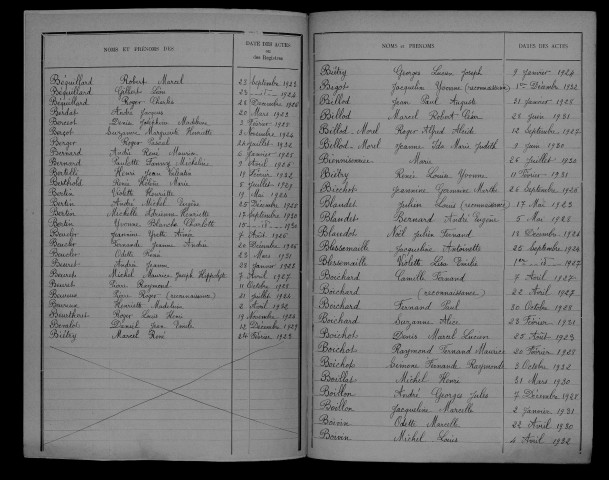 NOMS ET PRÉNOMS DES
DATE DES ACTES
ou
des Registres
Béquillard Robert Marcel 23 Septembre 1923
Béquillard Gilberte 23 -"- 1924
Béquillard Roger Charles
Berdat André Jacques 20 Mars 1923
Bereset Denise Joséphine Madeleine 2 Février
Bergot Suzanne Marguerite Henriette 3 Novembre 1924
Berger Roger Pascal Juillet 1932
Bernard André René Maurice 6 Janvier 1925
Bernard Paulette Fanny Micheline 9 Avril 1926
Bertelli Henri Jean Valentin 19 Février 1922
Berthold René Hélène Marie 5 Juillet 1929
Bertin Violette Henriette 19 Mai 1924
Bertin André Michel Eugène 25 Décembre 1925
Bertin Michelle Adrienne Henriette 17 Septembre 1930
Bertin Yvonne Blanche Charlotte 15 -"- 1931
Beucler Jeannine Yvette Anna 7 Août 1926
Beucler Fernande Jeanne Andrée 20 Décembre 1926
Beucler Odette René 23 Mars 1931
Beuret André Jeanne 28 Janvier 1922
Beuret Michel Maurice Joseph Hippolyte 7 Avril 1927
Beuret Pierre Raymond 11 Octobre 1928
Roger (reconnaissance) 31 Juillet 1924
Henriette Madeleine 2 Avril 1932
Beurthout Roger Louis Henri 19 Novembre 1924
Bevalot Daniel Jean Emile 12 Décembre 1929
Biétry Marcel René 24 Février 1923
NOMS et PRÉNOMS
DATES DES ACTES
Biétry Georges Lucien Joseph 9 Janvier 1924
Bigot Jacqueline Yvonne (reconnaissance) 1er Décembre 1932
Billod Jean Paul Auguste 31 Janvier 1928
Billod Marcel Robert Léon 28 Juin 1931
Billod-Morel Roger Alfred 12 Septembre 1927
Billod-Morel Jeanne Marie Judith 3 Juin 1930
Marie 26 Juillet 1930
Biétry René Louis Yvonne 11 Février 1931
Blochet Jeannine Germaine Marthe 26 Septembre 1926
Blandet Julien Louis (reconnaissance) 17 Mai 1923
Blandet Bernard André Eugène 5 Mai 1928
Blaudot Noël Julien Fernand 18 Décembre 1926
Blessemaille Jacqueline Antoinette 25 Septembre 1924
Blessemaille Violette Lisa Emilie 1er -"- 1927
Boichard Camille Fernand 7 Avril 1927
Boichard (reconnaissance) 22 Avril 1927
Boichard Fernand Paul 30 Octobre 1928
Boichard Suzanne Alice 23 Février 1931
Boichot Denis Marcel Lucien 25 Août 1923
Boichot Raymond Fernand Maurice 20 Février 1928
Boichot Simone Fernande Raymonde 3 Octobre 1932
Boillot Michel Henri 31 Mars 1930
Boillon André Georges Jules 7 Décembre 1928
Boillon Jacqueline Marcelle 2 Janvier 1931
Boivin Odette Marcelle 22 Avril 1930
Boivin Michel Louis 4 Avril 1932